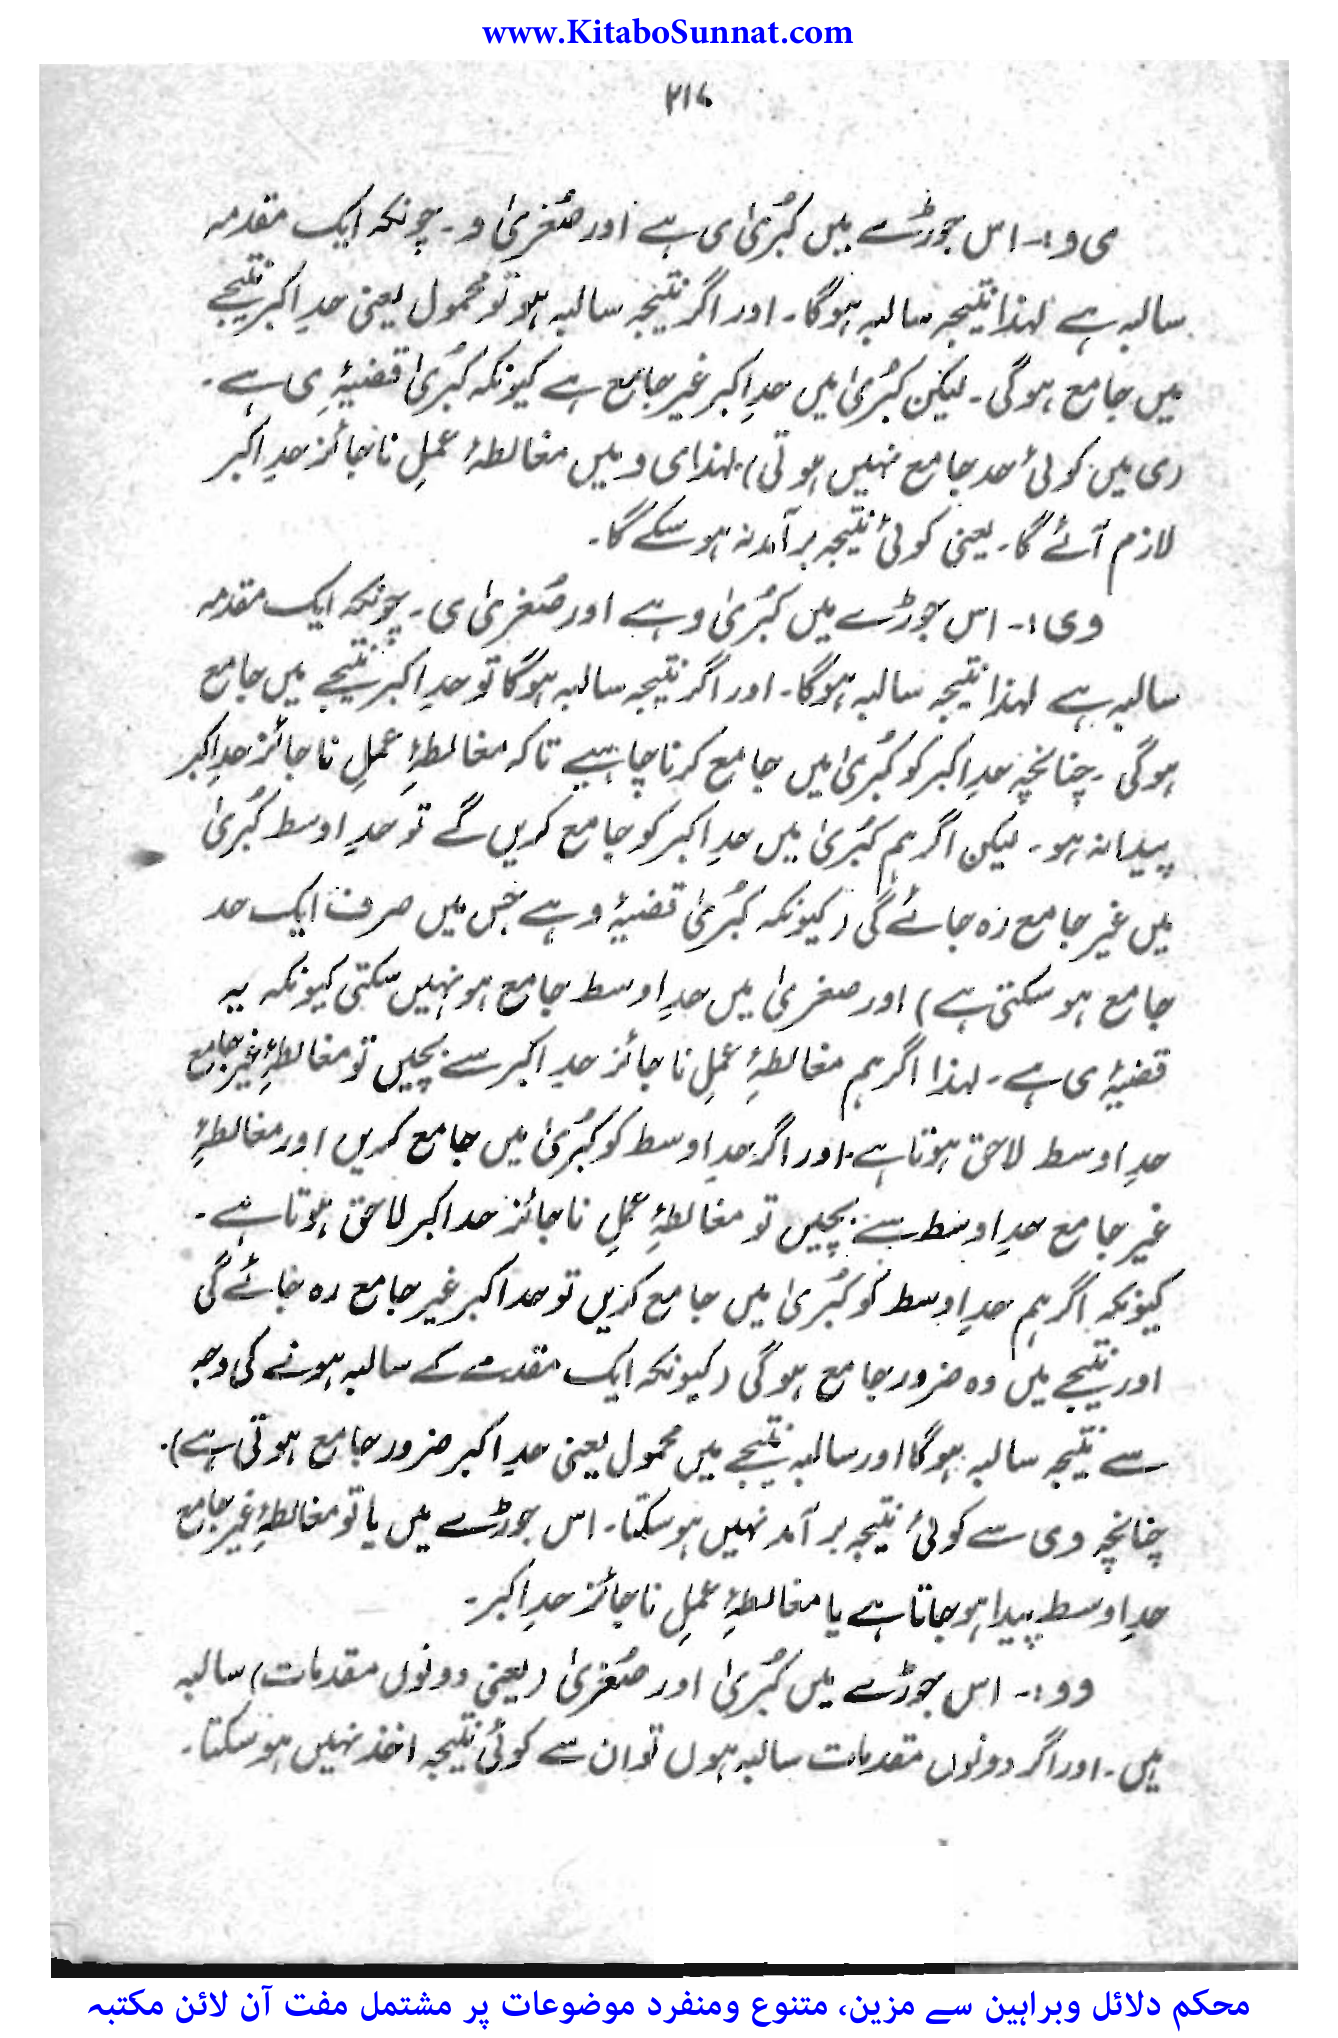 www.KitaboSunnat.com
۲۱۷
ی و :۔ اس جوڑے میں کُبریٰ ی ہے اور صُغریٰ و۔ چونکہ ایک مقدمہ
سالبہ ہے لہذا نتیجہ سالبہ ہوگا۔ اور اگر نتیجہ سالبہ ہو تو محمول یعنی حدِ اکبر نتیجے
میں جامع ہوگی۔ لیکن کُبریٰ میں حدِ اکبر غیر جامع ہے کیونکہ کُبریٰ قضیۂ ی ہے۔
(ی میں کوئی حد جامع نہیں ہوتی) لہذا ی و میں مغالطۂ عملِ ناجائز حدِ اکبر
لازم آئے گا۔ یعنی کوئی نتیجہ برآمد نہ ہو سکے گا۔
و ی :۔ اس جوڑے میں کُبریٰ و ہے اور صُغریٰ ی۔ چونکہ ایک مقدمہ
سالبہ ہے لہذا نتیجہ سالبہ ہوگا۔ اور اگر نتیجہ سالبہ ہوگا تو حدِ اکبر نتیجے میں جامع
ہوگی۔ چنانچہ حدِ اکبر کو کُبریٰ میں جامع کرنا چاہیے تاکہ مغالطۂ عملِ ناجائز حدِ اکبر
پیدا نہ ہو۔ لیکن اگر ہم کُبریٰ میں حدِ اکبر کو جامع کریں گے تو حدِ اوسط کُبریٰ
میں غیر جامع رہ جائے گی (کیونکہ کُبریٰ قضیۂ و ہے جس میں صرف ایک حد
جامع ہو سکتی ہے) اور صغریٰ میں حدِ اوسط جامع ہو نہیں سکتی کیونکہ یہ
قضیۂ ی ہے۔ لہذا اگر ہم مغالطۂ عملِ ناجائز حدِ اکبر سے بچیں تو مغالطۂ غیر جامع
حدِ اوسط لاحق ہوتا ہے۔ اور اگر حدِ اوسط کو کُبریٰ میں جامع کریں اور مغالطۂ
غیر جامع حدِ اوسط سے بچیں تو مغالطۂ عملِ ناجائز حد اکبر لاحق ہوتا ہے۔
کیونکہ اگر ہم حدِ اوسط کو کُبریٰ میں جامع کریں تو حد اکبر غیر جامع رہ جائے گی
اور نتیجے میں وہ ضرور جامع ہوگی (کیونکہ ایک مقدمے کے سالبہ ہونے کی وجہ
سے نتیجہ سالبہ ہوگا اور سالبہ نتیجے میں محمول یعنی حدِ اکبر ضرور جامع ہوتی ہے)۔
چنانچہ و ی سے کوئی نتیجہ برآمد نہیں ہو سکتا۔ اس جوڑے میں یا تو مغالطۂ غیر جامع
حدِ اوسط پیدا ہو جاتا ہے یا مغالطۂ عملِ ناجائز حدِ اکبر۔
و و :۔ اس جوڑے میں کُبریٰ اور صُغریٰ (یعنی دونوں مقدمات) سالبہ
ہیں۔ اور اگر دونوں مقدمات سالبہ ہوں تو ان سے کوئی نتیجہ اخذ نہیں ہو سکتا۔
محکم دلائل وبراہین سے مزین، متنوع ومنفرد موضوعات پر مشتمل مفت آن لائن مکتبہ